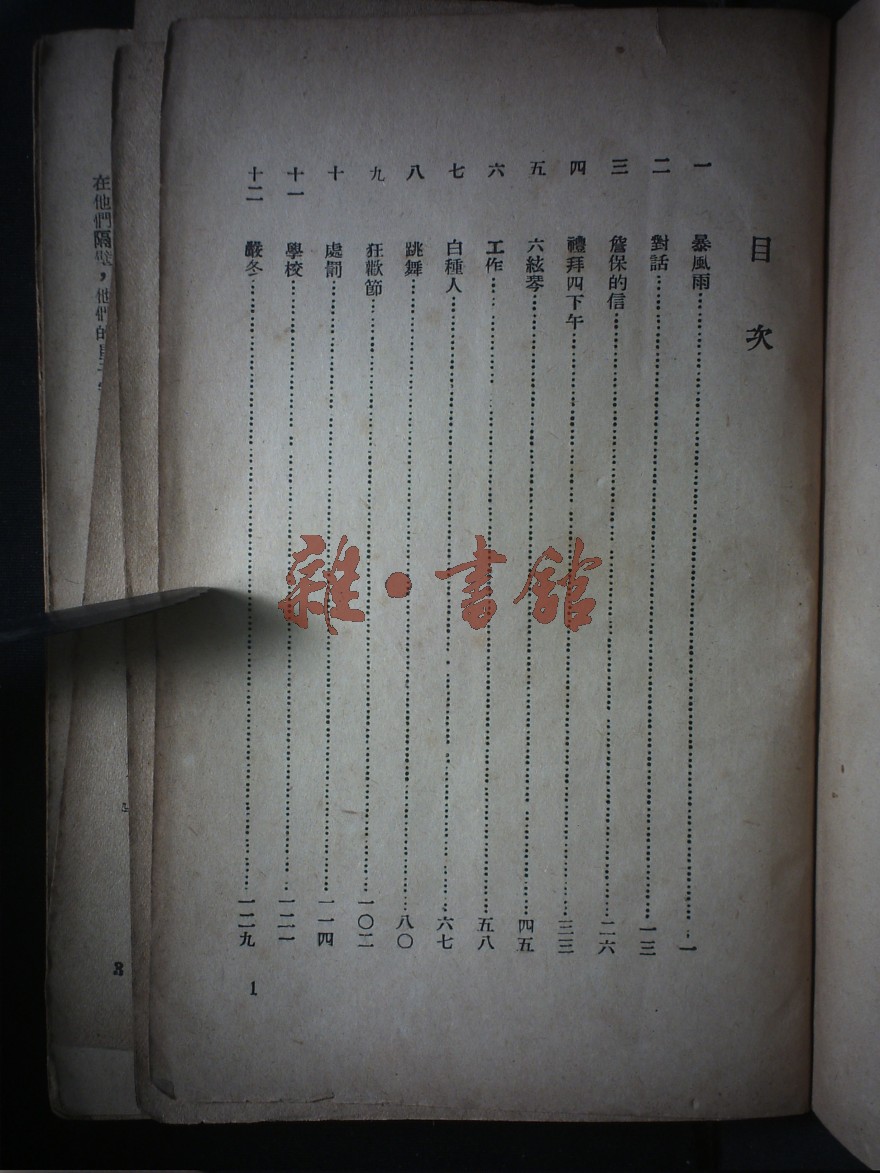 目次
一 暴風雨 一
二 對話 一三
三 詹保的信 二六
四 禮拜四下午 三三
五 六絃琴 四五
六 工作 五八
七 白種人 六七
八 跳舞 八〇
九 狂歡節 一〇二
十 處罰 一一四
十一 學校 一二一
十二 嚴冬 一二九
1
在他們隔
，他們的
3
雜·書館